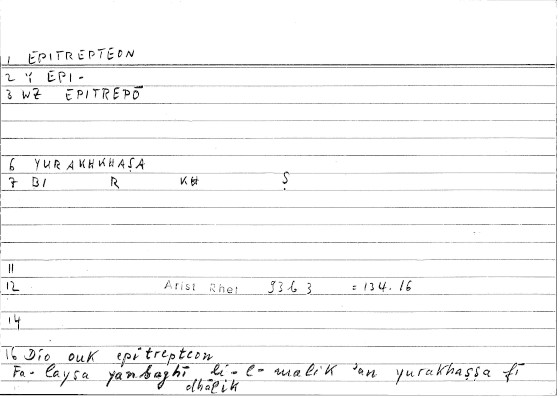 1 EPITREPTEON
2 Y EPI-
3 WZ EPITREPŌ
6 YURAKHKHAṢA
7 BI R KH Ṣ
11
12 Arist Rhet 9363 = 134.16
14
16 Dio ouk epitrepteon
Fa-laysa yanbaghī li-l-malik 'an yurakhaṣṣa fī
dhālik